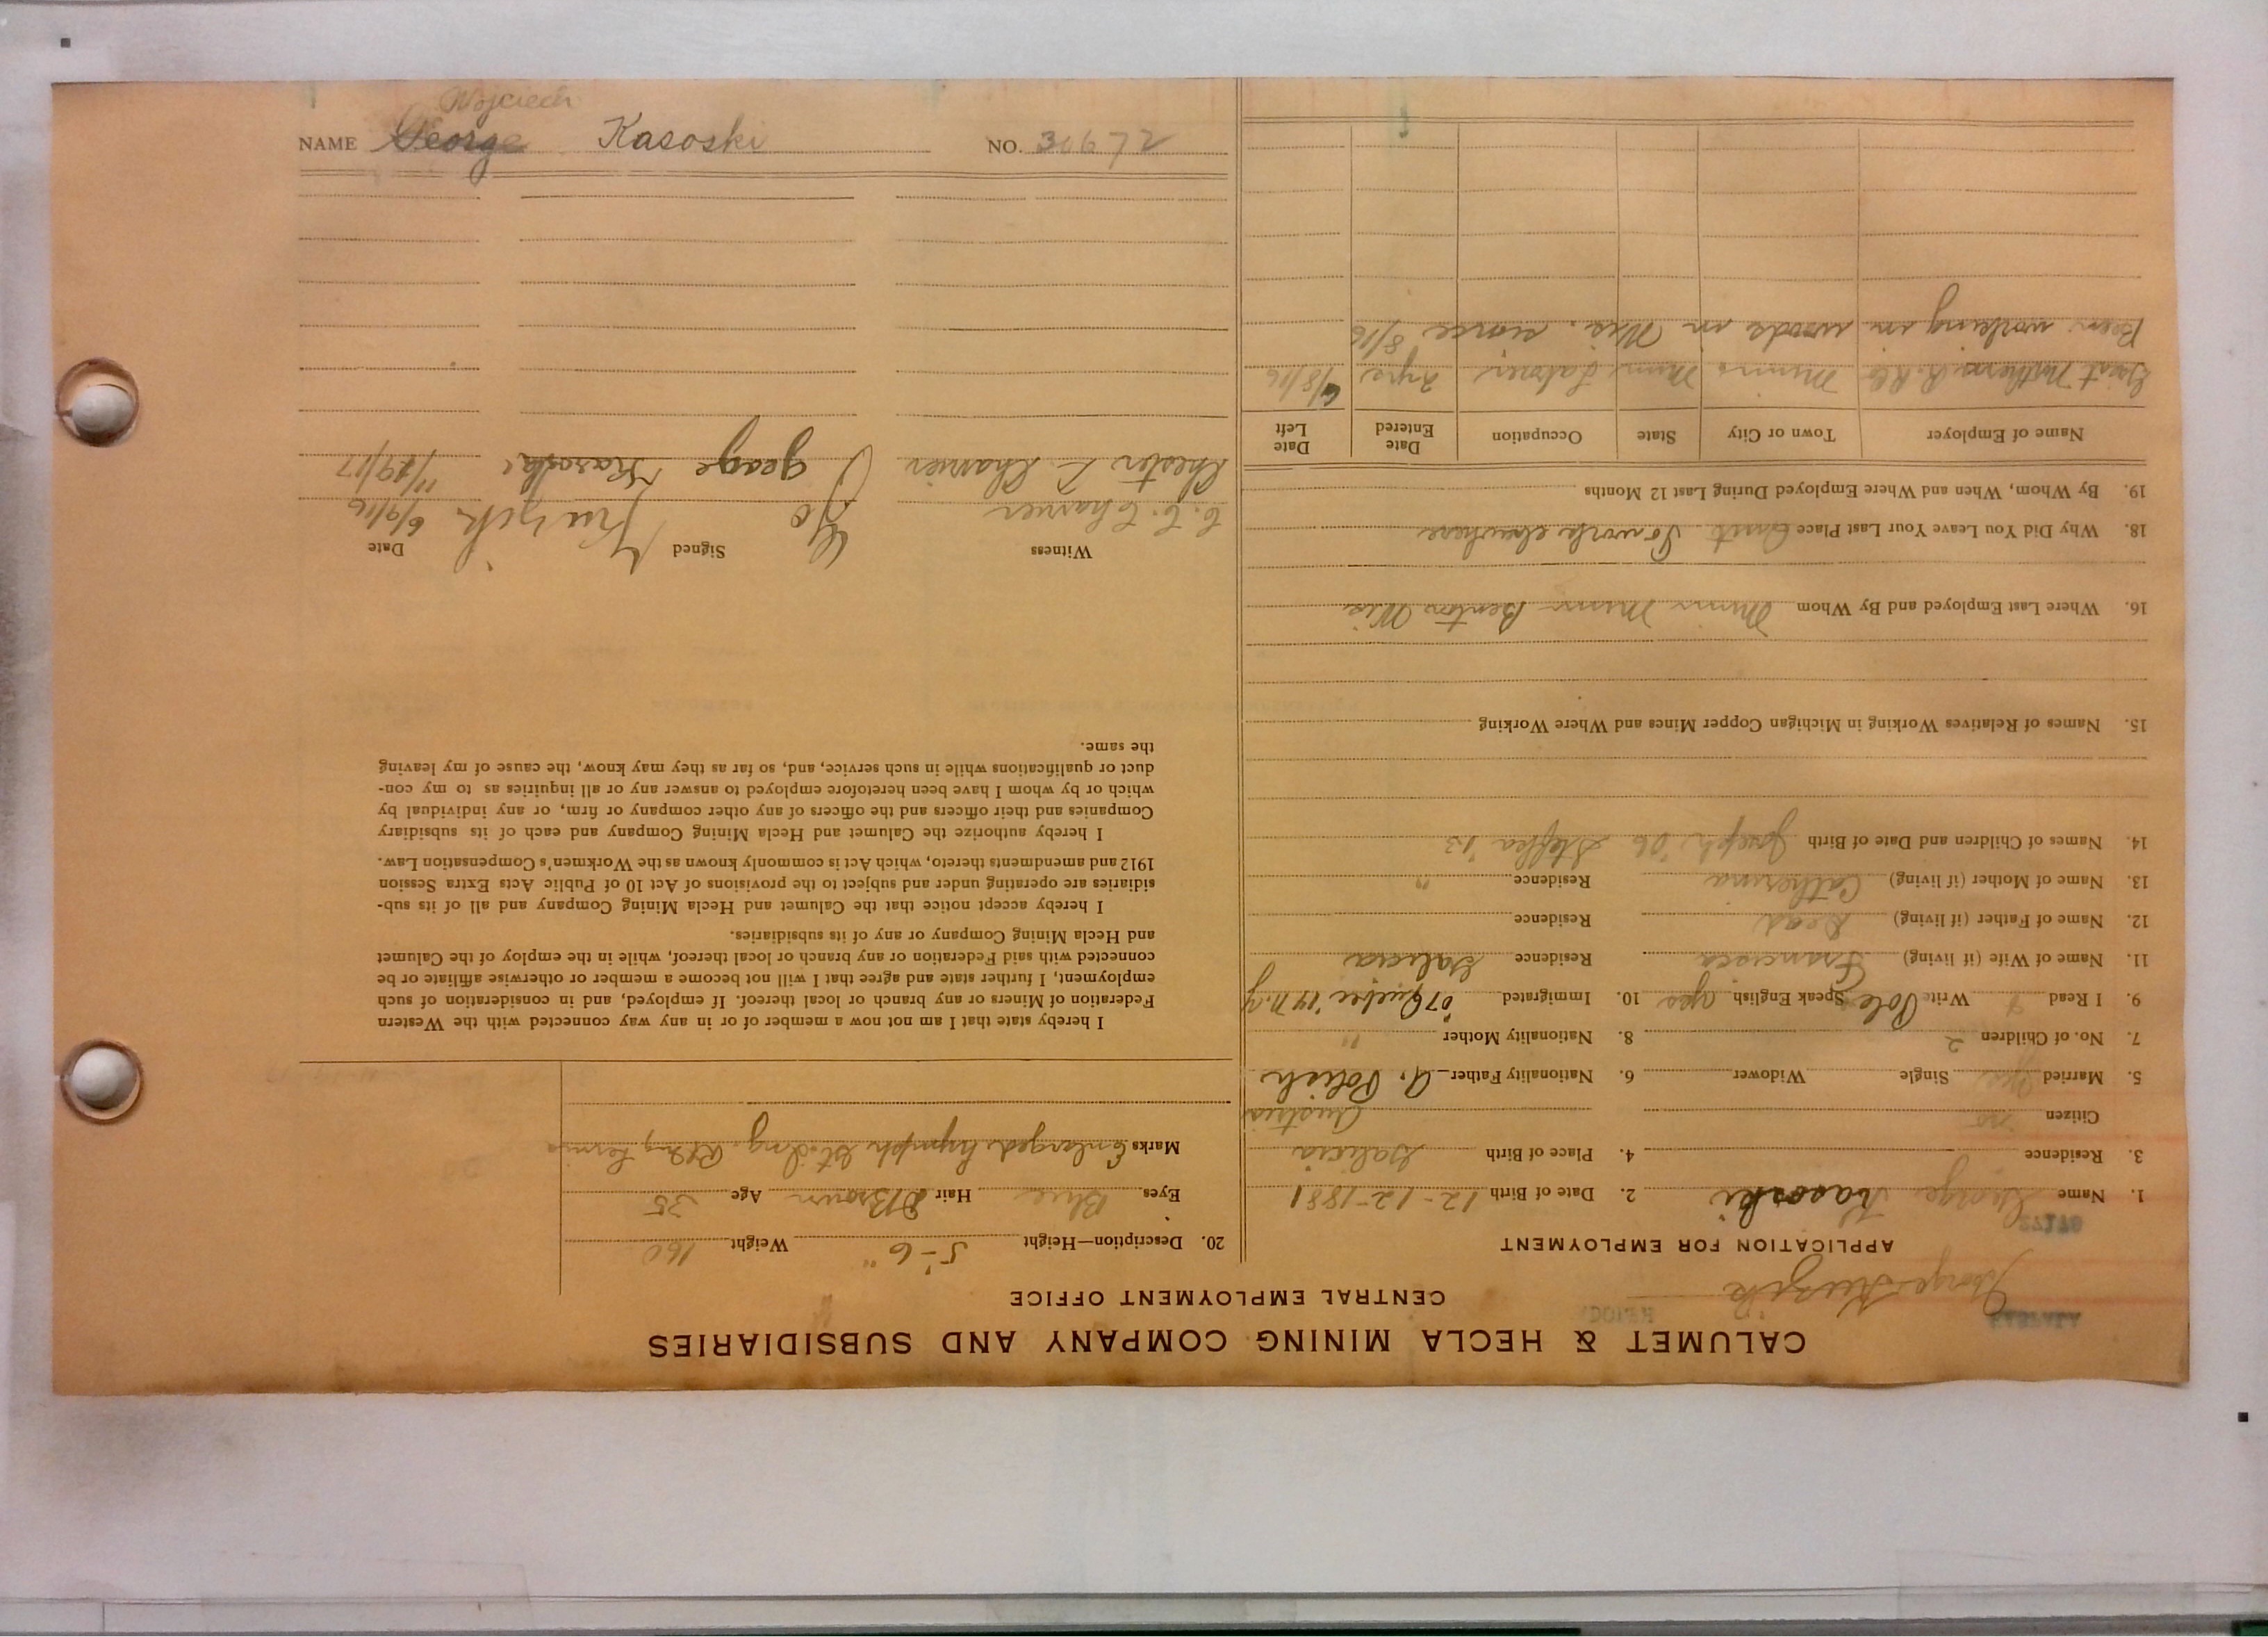 Wojciech
NAME George Kasoski NO. 30672
CALUMET & HECLA MINING COMPANY AND SUBSIDIARIES
CENTRAL EMPLOYMENT OFFICE
George
27178
APPLICATION FOR EMPLOYMENT
1. Name George Kasoski 2. Date of Birth 12-12-1881
3. Residence 4. Place of Birth Galicia
Citizen no Austria
5. Married yes Single Widower 6. Nationality Father A. Polish
7. No. of Children 2 8. Nationality Mother "
9. I Read Write Pole Speak English yes 10. Immigrated '07 Quebec '14 N.Y.
11. Name of Wife (if living) Francisca Residence Galicia
12. Name of Father (if living) Dead Residence
13. Name of Mother (if living) Catherina Residence "
14. Names of Children and Date of Birth Joseph '06 Steffka '13
15. Names of Relatives Working in Michigan Copper Mines and Where Working
16. Where Last Employed and By Whom Mine Benton Wis
18. Why Did You Leave Your Last Place Quit To work elsewhere
19. By Whom, When and Where Employed During Last 12 Months
Name of Employer Town or City State Occupation Date Entered Date Left
Great Northern R.R. Co Minn Laborer 6/8/16
Been working in woods in Wis. since 8/16
20. Description—Height 5-6" Weight 160
Eyes Blue Hair D Brown Age 35
Marks Enlarged Lymph
I hereby state that I am not now a member of or in any way connected with the Western
Federation of Miners or any branch or local thereof. If employed, and in consideration of such
employment, I further state and agree that I will not become a member or otherwise affiliate or be
connected with said Federation or any branch or local thereof, while in the employ of the Calumet
and Hecla Mining Company or any of its subsidiaries.
I hereby accept notice that the Calumet and Hecla Mining Company and all of its sub-
sidiaries are operating under and subject to the provisions of Act 10 of Public Acts Extra Session
1912 and amendments thereto, which Act is commonly known as the Workmen's Compensation Law.
I hereby authorize the Calumet and Hecla Mining Company and each of its subsidiary
Companies and their officers and the officers of any other company or firm, or any individual by
which or by whom I have been heretofore employed to answer any or all inquiries as to my con-
duct or qualifications while in such service, and, so far as they may know, the cause of my leaving
the same.
Witness Signed Date
C. C. Charrier Geo 6/9/16
Chester C. Charrier George 11/19/17